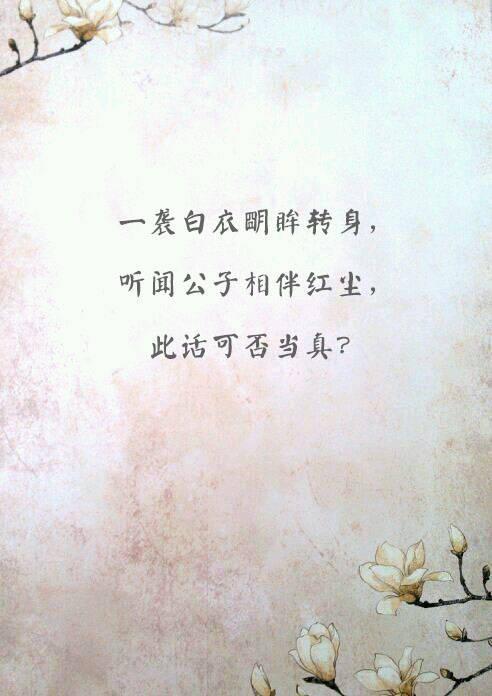 一袭白衣明眸转身，
听闻公子相伴红尘，
此话可否当真？